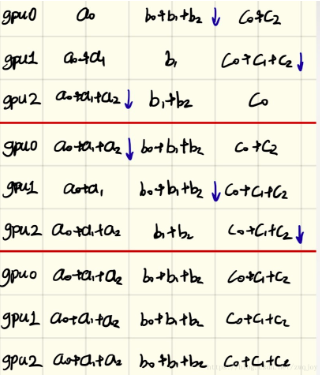 gpu0 a₀ b₀+b₁+b₂ ↓ c₀+c₂
gpu1 a₀+a₁ b₁ c₀+c₁+c₂ ↓
gpu2 a₀+a₁+a₂ ↓ b₁+b₂ c₀
gpu0 a₀+a₁+a₂ ↓ b₀+b₁+b₂ c₀+c₂
gpu1 a₀+a₁ b₀+b₁+b₂ ↓ c₀+c₁+c₂
gpu2 a₀+a₁+a₂ b₁+b₂ c₀+c₁+c₂ ↓
gpu0 a₀+a₁+a₂ b₀+b₁+b₂ c₀+c₁+c₂
gpu1 a₀+a₁+a₂ b₀+b₁+b₂ c₀+c₁+c₂
gpu2 a₀+a₁+a₂ b₀+b₁+b₂ c₀+c₁+c₂